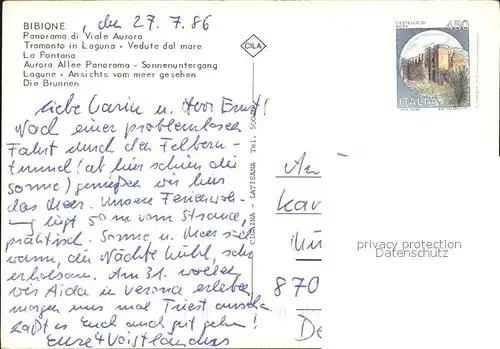 BIBIONE, den 27.7.86
Panorama di Viale Aurora
Tramonto in Laguna - Vedute dal mare
La Fontana
Aurora Allee Panorama - Sonnenuntergang
Lagune - Ansichts vom meer gesehen
Die Brunnen
CILA
CASTELLO DI ROSA
450
ITALIA
Liebe Karin u. Herr Ernst!
Nach einer problemlosen
Fahrt durch den Felbern-
tunnel (ab hier schien die
Sonne) genießen wir hier
das Meer. Unsere Ferienwoh-
ng liegt 50 m vom Strand,
praktisch. Sonne u. Meer sich
warm, die Nächte kühl, sehr
erholsam. Am 31. wollen
wir Aida in Verona erleben,
morgen uns mal Triest anseh
Laßt es Euch auch gut gehen!
Eure 4 Voigtländers
CIGAINA - LATISANA Tel.
An
Kar
870
De
privacy protection
Datenschutz